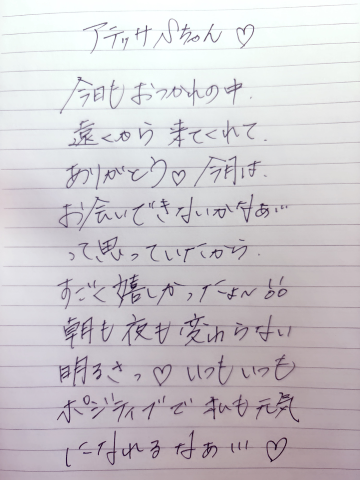 アテッサSちゃん♡
今日も おつかれの中.
遠くから 来てくれて.
ありがとう♡ 今月は.
お会いできないかなぁ…
って思っていたから.
すごく嬉しかったよ〜!!
朝も夜も変わらない
明るさっ♡ いつもいつも
ポジティブで 私も元気
になれるなぁ…♡